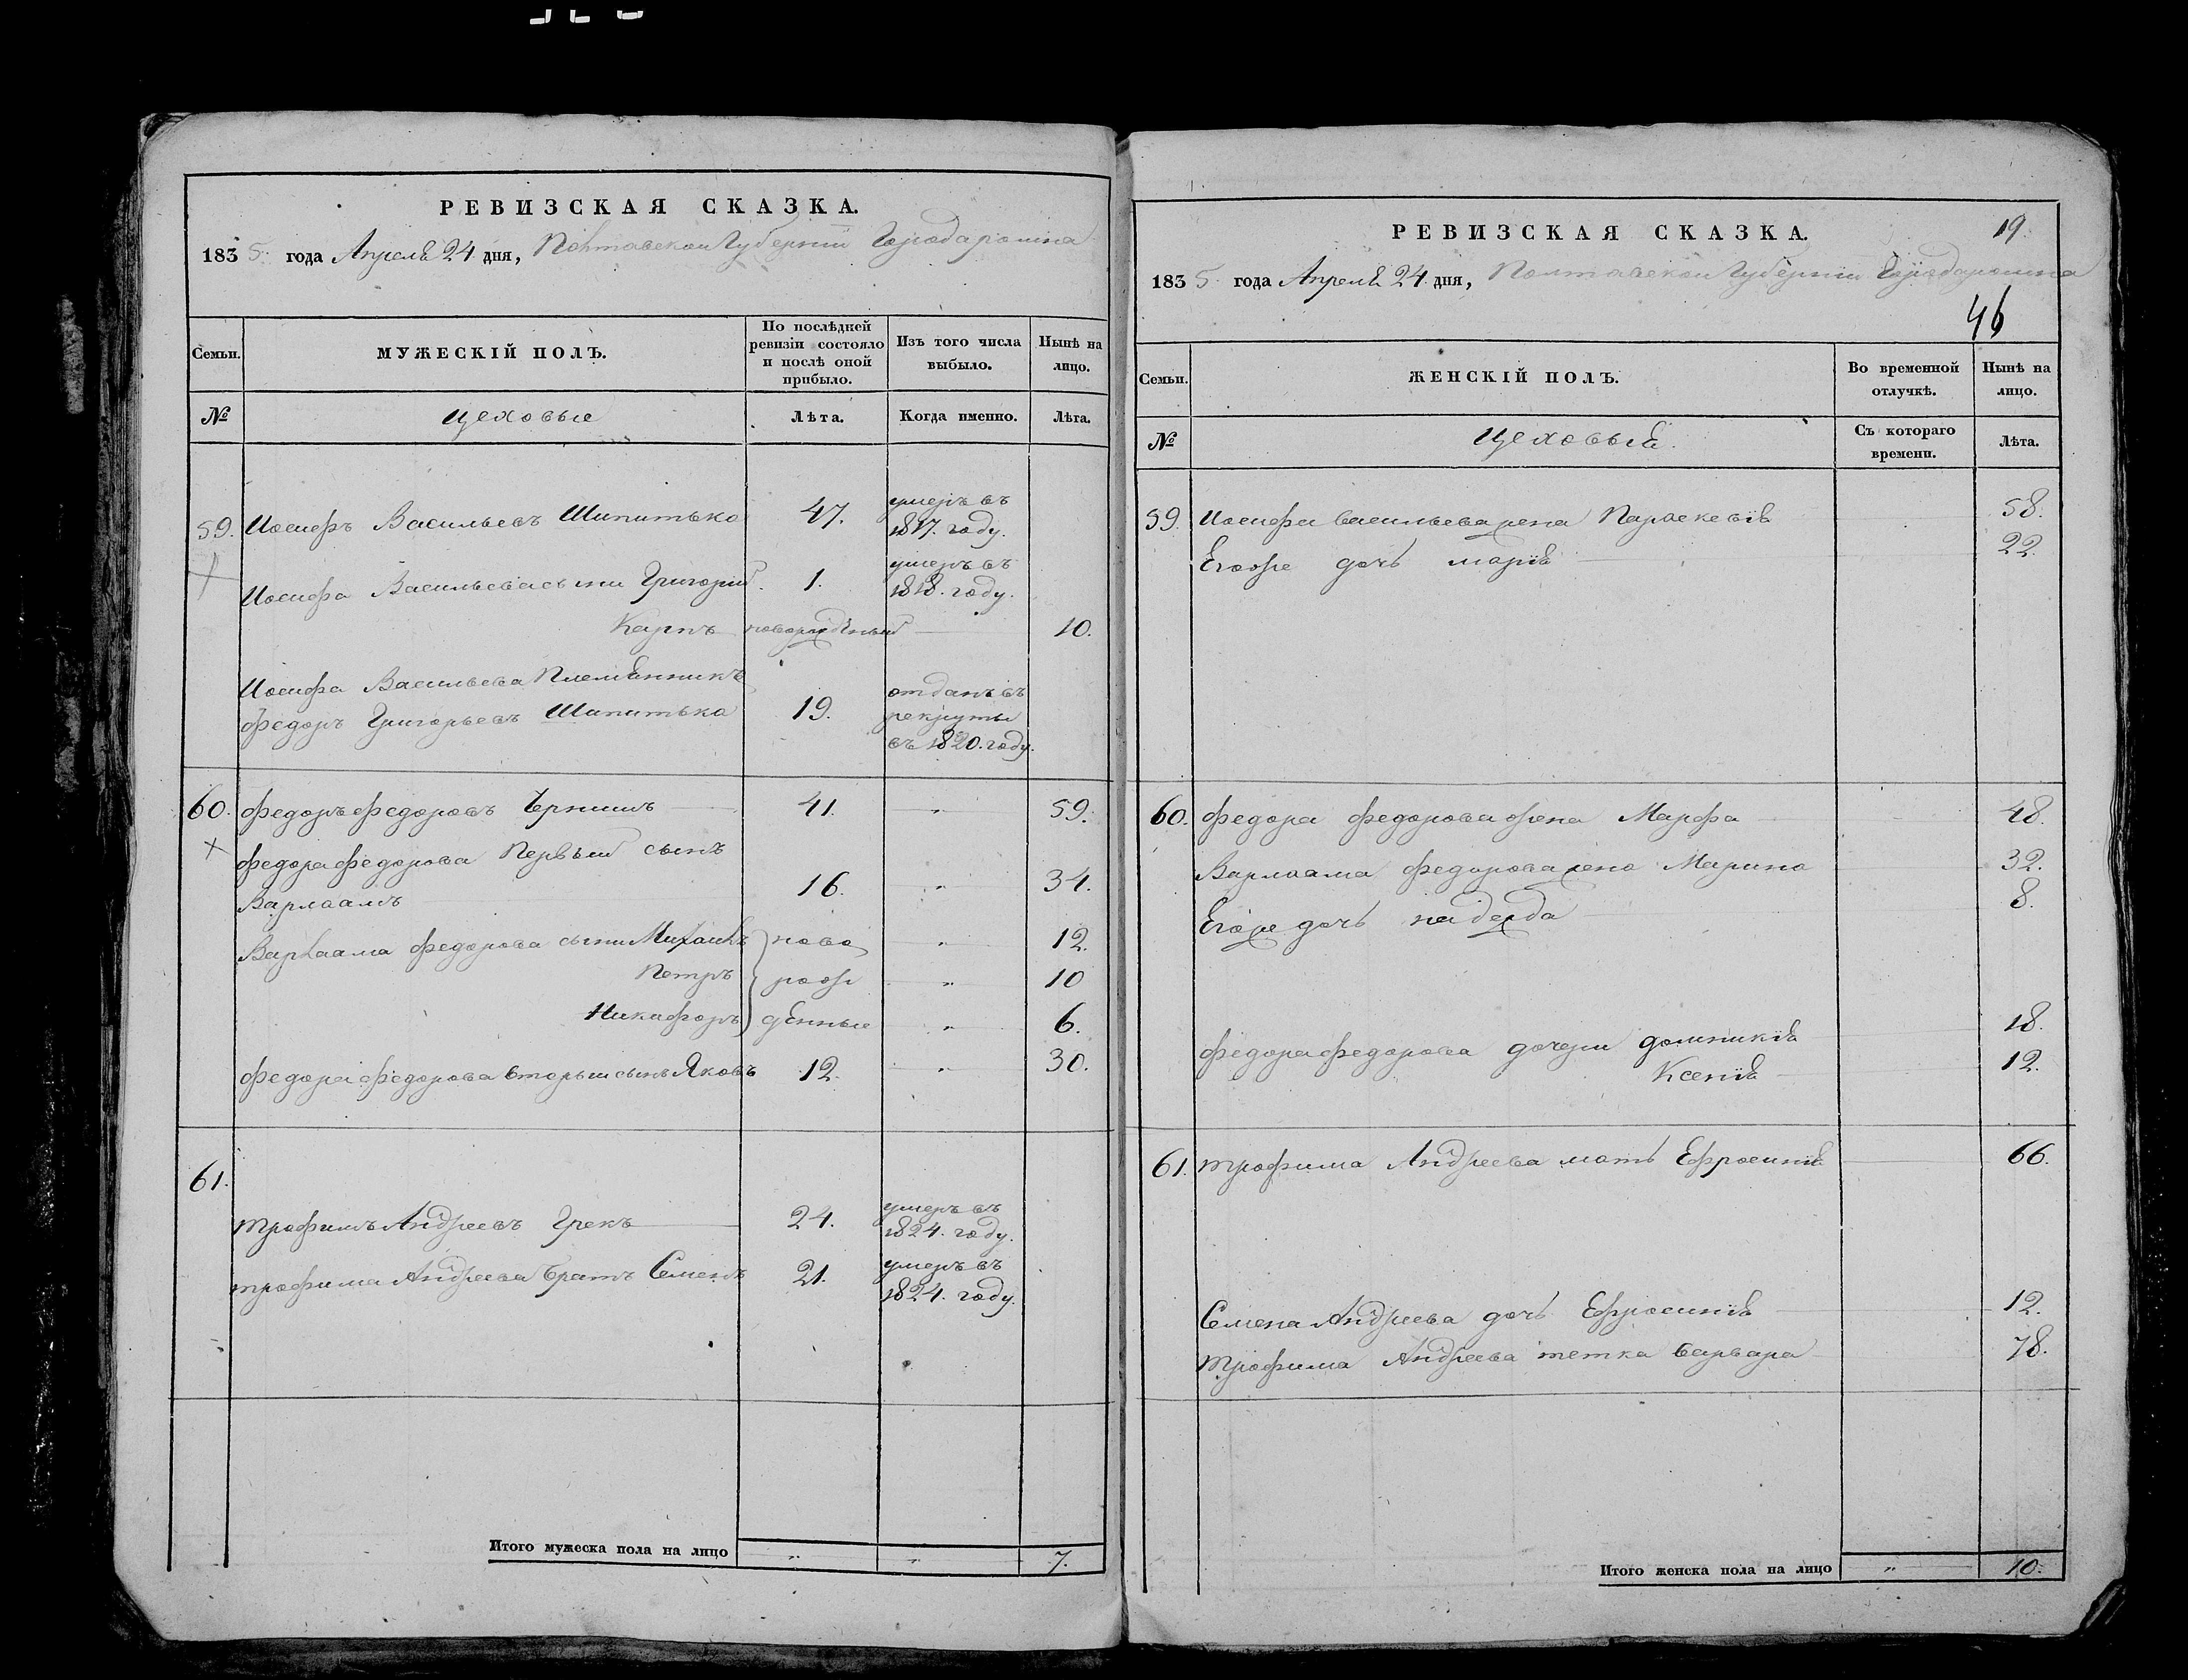 РЕВИЗСКАЯ СКАЗКА.
1835. года Апреля 24 дня, Полтавской Губернии Города ромна
Семьи.
МУЖЕСКІЙ ПОЛЪ.
По послѣдней ревизіи состояло и послѣ оной прибыло.
Изъ того числа выбыло.
Нынѣ на лицо.
№
Цеховые
Лѣта.
Когда именно.
Лѣта.
59. Иосифъ Васильевъ Шипитько 47. умеръ въ 1817. году.
Иосифа Васильева сыни Григорий 1. умеръ въ 1818. году.
Карпъ новорожденый 10.
Иосифа Васильева Племѣнникъ
федоръ Григорьевъ Шипитька 19. отданъ въ рекруты въ 1820. году.
60. федоръ федоровъ Чернишъ 41. „ 59.
федора федорова Первый сынъ
Варлаамъ 16. „ 34.
Варлаама федорова сыни Михаилъ ново „ 12.
Петръ рож „ 10
Никифоръ денные „ 6.
федора федорова вторый сынъ Яковъ 12. „ 30.
61.
трофимъ Андреевъ Грекъ 24. умеръ въ 1824. году.
трофима Андреева братъ Семенъ 21. умеръ въ 1824. году.
Итого мужеска пола на лицо „ „ 7.
19.
РЕВИЗСКАЯ СКАЗКА.
1835. года Апреля 24 дня, Полтавской Губернии Города ромна
46
Семьи.
ЖЕНСКІЙ ПОЛЪ.
Во временной отлучкѣ.
Нынѣ на лицо.
№
Цеховыя.
Съ котораго времени.
Лѣта.
59. Иосифа васильева жена Параскевія 58.
Егоже дочь марія 22.
60. федора федорова жена Марфа 48.
Варлаама федорова жена Марина 32.
Егоже дочь надежда 8.
федора федорова дочери домникія 18.
Ксенія 12.
61. трофима Андреева мать Ефросинія 66.
Семена Андреева дочь Ефросинія 12.
трофима Андреева тетка варвара 78.
Итого женска пола на лицо „ 10.